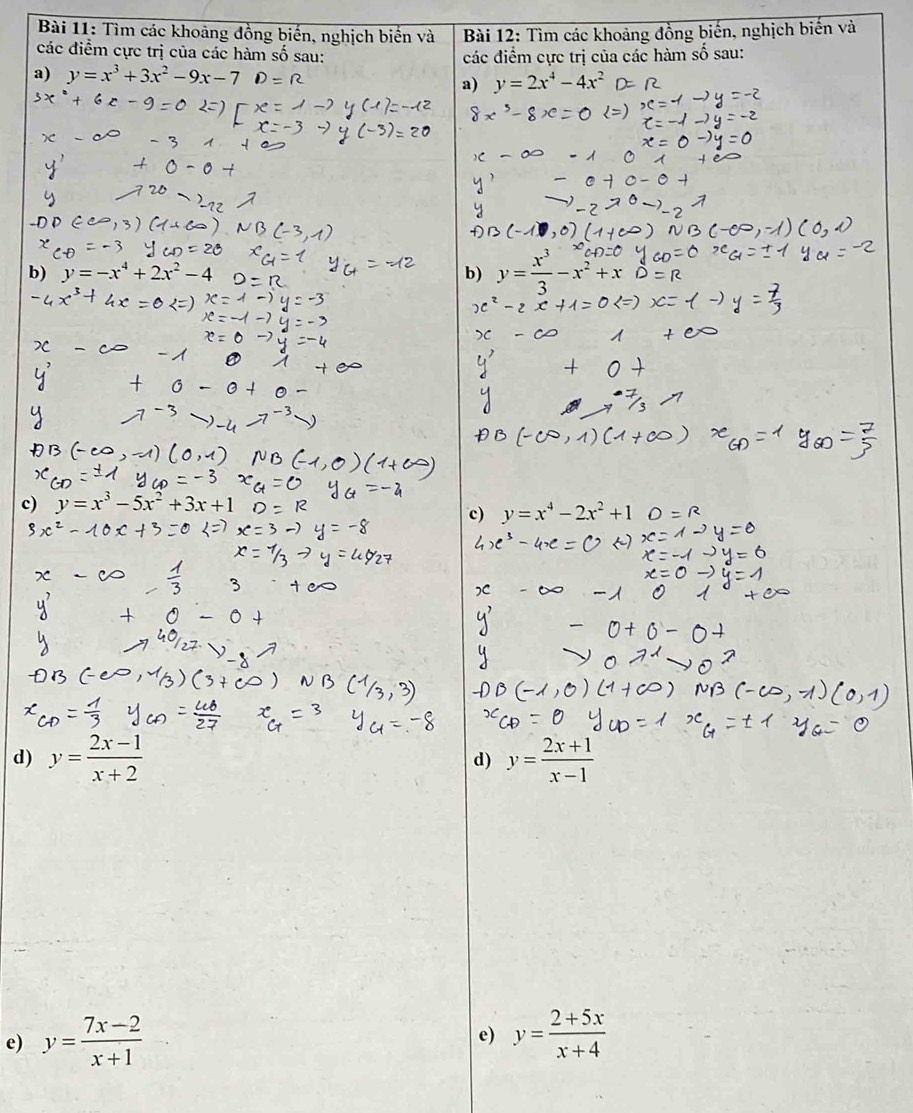 Bài 11: Tìm các khoảng đồng biến, nghịch biến và
các điểm cực trị của các hàm số sau:
a) y = x³ + 3x² − 9x − 7 D = R
3x² + 6x − 9 = 0 <=> [ x = 1 → y(1) = −12
x = −3 → y(−3) = 20
x −∞ −3 1 +∞
y' + 0 − 0 +
y ↗ 20 ↘ −12 ↗
ĐB (−∞, 3) (1 +∞) NB (−3, 1)
x_CĐ = −3 y_CĐ = 20 x_CT = 1 y_CT = −12
b) y = −x⁴ + 2x² − 4 D = R
−4x³ + 4x = 0 <=> x = 1 → y = −3
x = −1 → y = −3
x = 0 → y = −4
x −∞ −1 0 1 +∞
y' + 0 − 0 + 0 −
y ↗ −3 ↘ −4 ↗ −3 ↘
ĐB (−∞, −1) (0, 1) NB (−1, 0) (1 +∞)
x_CĐ = ±1 y_CĐ = −3 x_CT = 0 y_CT = −4
c) y = x³ − 5x² + 3x + 1 D = R
3x² − 10x + 3 = 0 <=> x = 3 → y = −8
x = 1/3 → y = 40/27
x −∞ 1/3 3 +∞
y' + 0 − 0 +
y ↗ 40/27 ↘ −8 ↗
ĐB (−∞, 1/3) (3 +∞) NB (1/3, 3)
x_CĐ = 1/3 y_CĐ = 40/27 x_CT = 3 y_CT = −8
d) y = (2x − 1)/(x + 2)
e) y = (7x − 2)/(x + 1)
Bài 12: Tìm các khoảng đồng biến, nghịch biến và
các điểm cực trị của các hàm số sau:
a) y = 2x⁴ − 4x² D = R
8x³ − 8x = 0 <=> x = 1 → y = −2
x = −1 → y = −2
x = 0 → y = 0
x −∞ −1 0 1 +∞
y' − 0 + 0 − 0 +
y ↘ −2 ↗ 0 ↘ −2 ↗
ĐB (−1, 0) (1 +∞) NB (−∞, −1) (0, 1)
x_CĐ = 0 y_CĐ = 0 x_CT = ±1 y_CT = −2
b) y = x³/3 − x² + x D = R
x² − 2x + 1 = 0 <=> x = 1 → y = 7/3
x −∞ 1 +∞
y' + 0 +
y ↗ 7/3 ↗
ĐB (−∞, 1) (1 +∞) x_CĐ = 1 y_CĐ = 7/3
c) y = x⁴ − 2x² + 1 D = R
4x³ − 4x = 0 <=> x = 1 → y = 0
x = −1 → y = 0
x = 0 → y = 1
x −∞ −1 0 1 +∞
y' − 0 + 0 − 0 +
y ↘ 0 ↗ 1 ↘ 0 ↗
ĐB (−1, 0) (1 +∞) NB (−∞, −1) (0, 1)
x_CĐ = 0 y_CĐ = 1 x_CT = ±1 y_CT = 0
d) y = (2x + 1)/(x − 1)
e) y = (2 + 5x)/(x + 4)